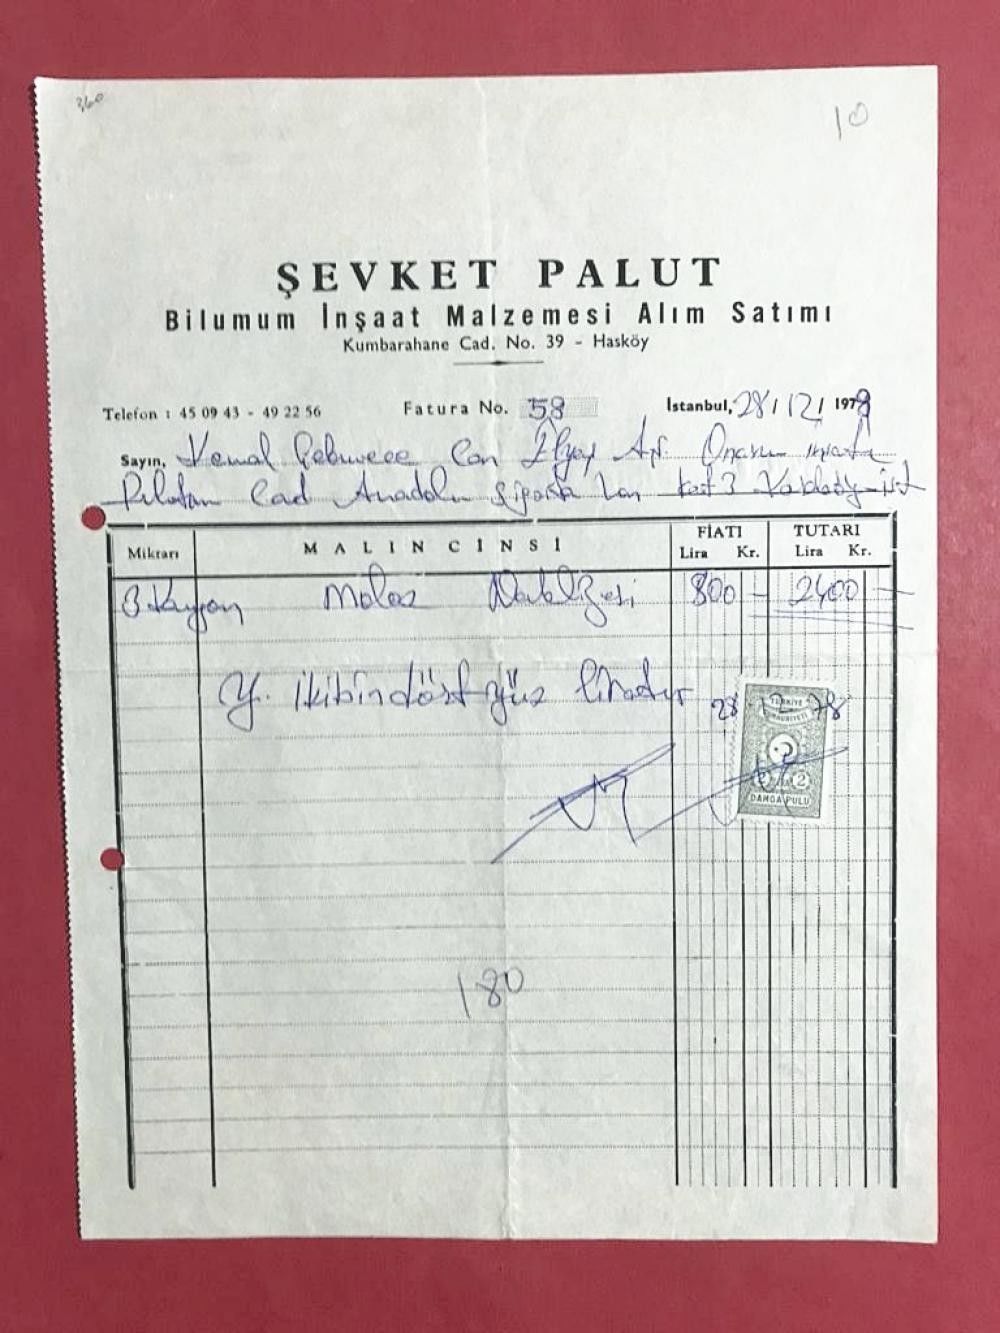 360
10
ŞEVKET PALUT
Bilumum İnşaat Malzemesi Alım Satımı
Kumbarahane Cad. No. 39 - Hasköy
Telefon : 45 09 43 - 49 22 56
Fatura No. 58
İstanbul, 28/12/1978
Sayın, Kemal Can Ap. Onarım
Cad Anadolu Sigorta Han kat 3
Mikrarı
MALIN CİNSİ
FİATI
TUTARI
Lira Kr.
Lira Kr.
3 Kamyon Moloz Nakliyesi 800 - 2400 -
Y. ikibindörtyüz liradır
28 78
TÜRKİYE
CUMHURİYETİ
2
DAMGA PULU
180